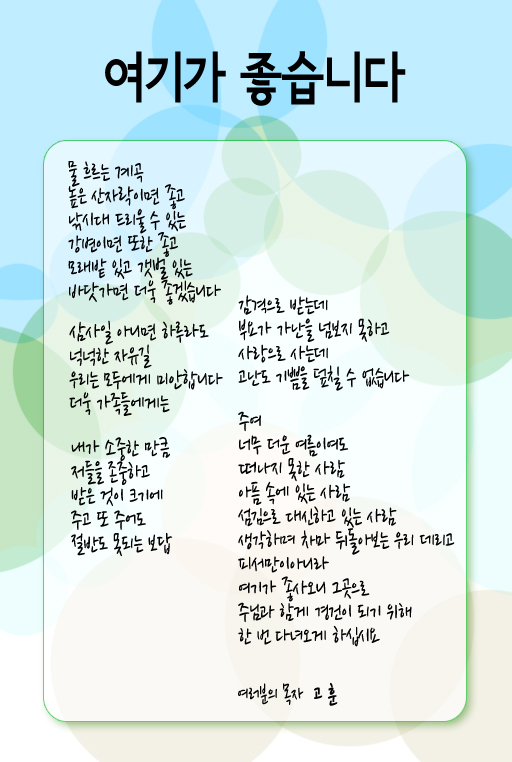 여기가 좋습니다
물 흐르는 계곡
높은 산자락이면 좋고
낚시대 드리울 수 있는
강변이면 또한 좋고
모래밭 있고 갯벌 있는
바닷가면 더욱 좋겠습니다
삼사일 아니면 하루라도
넉넉한 자유길
우리는 모두에게 미안합니다
더욱 가족들에게는
내가 소중한 만큼
저들을 존중하고
받은 것이 크기에
주고 또 주어도
절반도 못되는 보답
감격으로 받는데
부요가 가난을 넘보지 못하고
사랑으로 사는데
고난도 기쁨을 덮칠 수 없습니다
주여
너무 더운 여름이여도
떠나지 못한 사람
아픔 속에 있는 사람
섬김으로 대신하고 있는 사람
생각하며 차마 뒤돌아보는 우리 데리고
피세만이아니라
여기가 좋사오니 그곳으로
주님과 함께 경건이 되기 위해
한 번 다녀오게 하십시요
여러분의 목자 고 훈